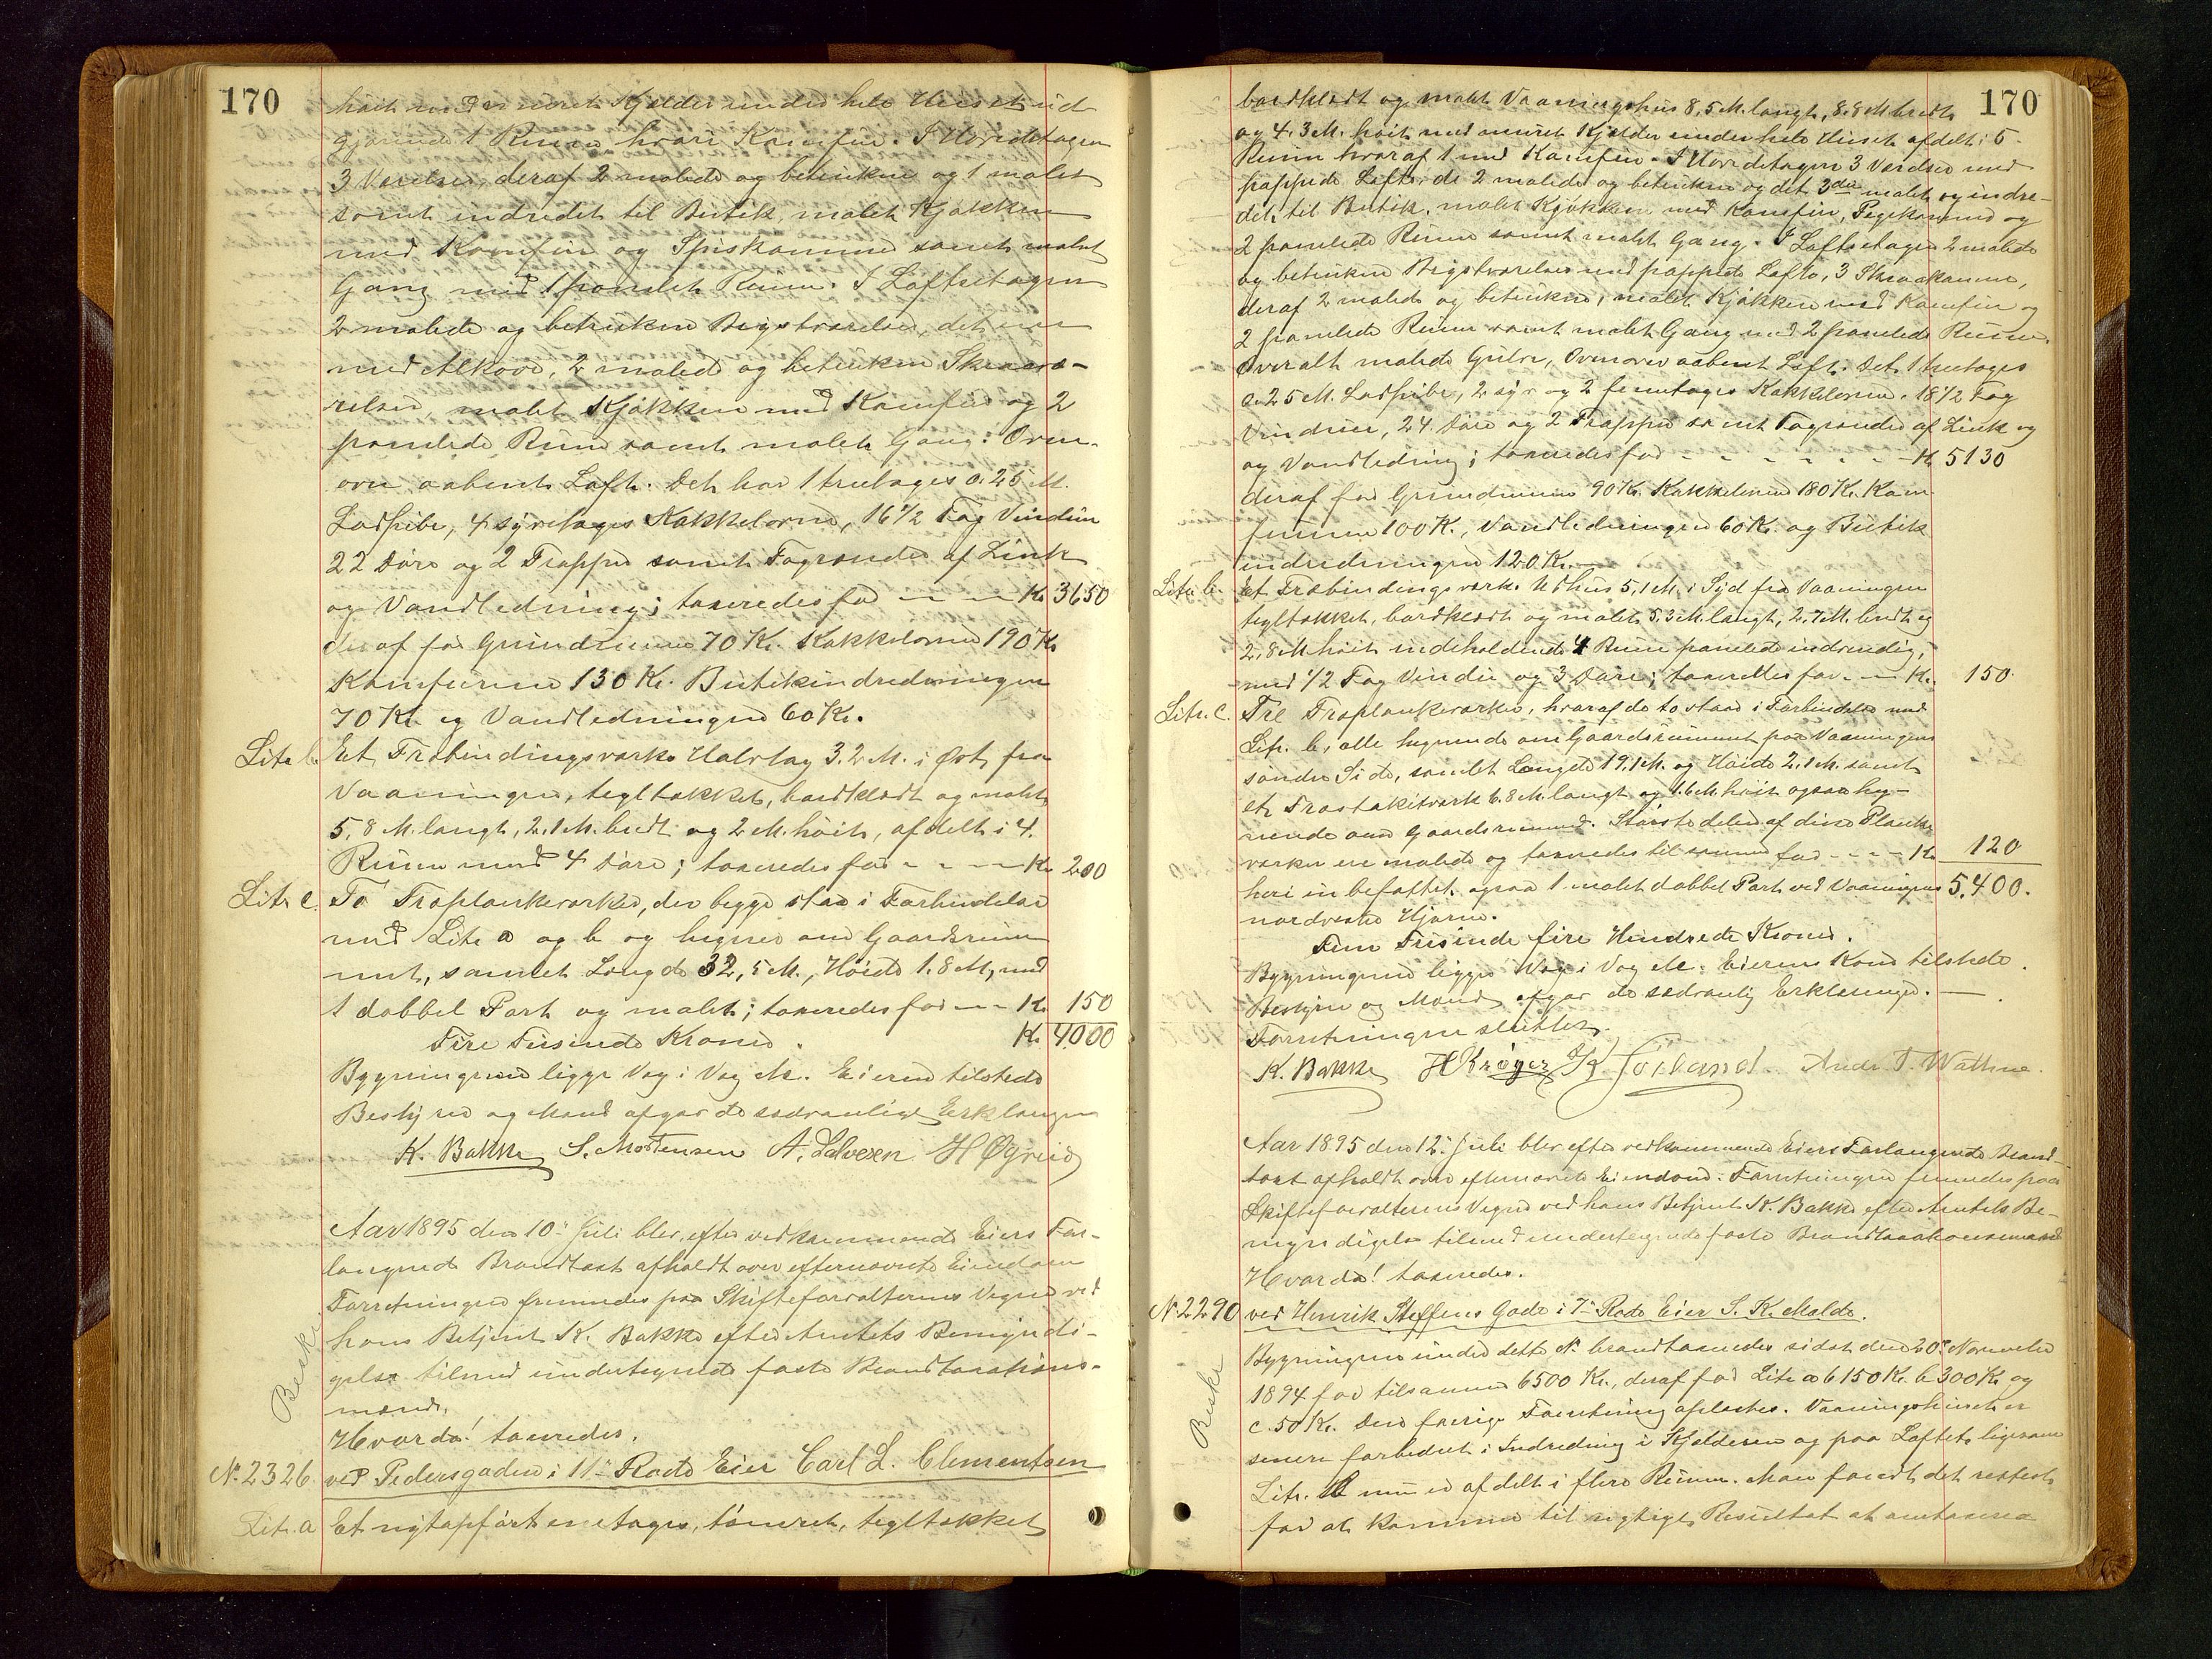 170
høit med en muret Kjelder under hele Huset ud-
gjørende 1 Rum hvori Komfur. I Hovedetagen
3 Værelser, deraf 2 malede og betrukne og 1 malet
samt indredet til Butik, malet Kjøkken
med Komfur og Spiskammer samt malet
Gang med 1 panelet Rum. I Loftsetagen
2 malede og betrukne Bigstværelser, det ene
med Alkove, 2 malede og betrukne Skraavæ-
relser, malet Kjøkken med Komfur og 2
panelede Rum samt malet Gang. Oven-
over aabent Loft. Det har 1 treetages a. 25 M.
Ladpibe, 4 syvetages Kakkelovne, 16 1/2 Fag Vinduer
22 Døre og 2 Trapper samt Tagrender af Zink
og Vandledning; taxeredes for - - - K. 3650
deraf for Grundmuren 70 Kr. Kakkelovnene 190 Kr
Komfurene 130 Kr. Butikindredningen
70 Kr. og Vandledningen 60 Kr.
Litr b. Et Træbindingsverks Halvtag 3.2 M. i Øst fra
Vaaningen, tegltækket, bordklædt og malet
5,8 M. langt, 2.1 M. bredt og 2 M. høit, afdelt i 4.
Rum med 4 Døre; taxeredes for - - - K. 200
Litr c. To Træplankeverker, der begge staa i Forbindelse
med Litr a og b og hegner om Gaardsrum-
met, samlet Længde 32,5 M., Høide 1.8 M, med
1 dobbel Port og malet; taxeredes for - - K. 150
Fire Tusinde Kroner. K. 4000
Bygningerne ligge Væg i Væg &c. Eieren tilstede
Bestyrer og Mænd afgav de sædvanlige Erklæringer
K. Bakke S. Mortensen A. Halvorsen H Øgreid
Aar 1895 den 10. Juli blev efter vedkommende Eiers For-
langende Brandtaxt afholdt over efternævnte Eiendom
Forretningen fremmedes paa Skifteforvalterens Vegne ved
hans Betjent K. Bakke efter Amtets Bemyndi-
gelse tilmed undertegnede faste Brandtaxations-
mænd.
Beskr.
Hvorda! taxeredes.
No. 2326. ved Pedersgaden i 11te Rode Eier Carl L. Clementsen
Litr. a Et nyt opført enetages, tømret, tegltækket
170
bordklædt og malet Vaaningshus 8,5 M. langt, 8.8 M. bredt
og 4.3 M. høit med muret Kjelder under hele Huset afdelt i 5
Rum hvoraf 1 med Komfur. I Hovedetagen 3 Værelser med
pappede Lofter, de 2 malede og betrukne og det 3die malet og indre-
det til Butik, malet Kjøkken med Komfur, Pigekammer og
2 panelede Rum samt malet Gang. I Loftsetagen 2 malede
og betrukne Bigstværelser med pappede Lofte, 3 Skraakamre,
deraf 2 malede og betrukne, malet Kjøkken med Komfur og
2 panelede Rum samt malet Gang med 2 panelede Rum.
Overalt malede Gulve, Ovenover aabent Loft. Det 1 treetages
a. 25 M. Ladpibe, 2 syv og 2 femetages Kakkelovne. 18 1/2 Fag
Vinduer, 24. Døre og 2 Trapper samt Tagrender af Zink og
og Vandledning; taxeredes for - - - - - - - K. 5130
deraf for Grundmuren 90 Kr. Kakkelovnene 180 Kr. Kom-
furene 100 K., Vandledningen 60 K. og Butik
indredningen 120 K. —
Litr b. Et Træbindingsverks Udhus 5,1 M. i Syd fra Vaaningen
tegltækket, bordklædt og malet 5.3 M. langt, 2.7 M. bredt og
2,8 M høit indeholdende 4 Rum panelede indvendig,
med 1/2 Fag Vindue og 3 Døre; taxeredes for - - - K. 150.
Litr. C. Tre Træplankeverker, hvoraf de to staar i Forbindelse med
Litr. b, alle hegnende om Gaardsrummet paa Vaaningens
søndre Side, samlet Længde 19.1 M. og Høide 2.1 M. samt
et Træstakitverk 6.8 M. langt og 1.6 M. høit ogsaa heg-
nende om Gaardsrummet. Største delen af disse Planke-
verker ere malede og taxeredes tilsammen for - - - - K. 120
heri indbefattet ogsaa 1 malet dobbel Port ved Vaaningens 5,400.
nordvestre Hjørne.
Fem Tusinde fire Hundrede Kroner.
Bygningerne ligge Væg i Væg &c. Eierens Kone tilstede.
Bestyrer og Mænd afgav de sædvanlig Erklæringer. —
Forretningen sluttet.
K. Bakke H Krøger K. Førland Andr. T. Wathne.
Aar 1895 den 12. Juli blev efter vedkommende Eiers Forlangende Brand-
taxt afholdt over efternævnte Eiendom. Forretningen fremmedes paa
Skifteforvalterens Vegne ved hans Betjent K. Bakke efter Amtets Be-
myndigelse tilmed undertegnede faste Brandtaxationsmænd
Hvorda! taxeredes.
No. 2290 ved Henrik Steffens Gade i 7de Rode Eier S. K. Malde.
Beskr
Bygningerne under dette No. brandtaxeredes sidst den 20de November
1894 for tilsammen 6500 Kr., deraf for Litr a 6150 Kr. b 300 Kr og
c. 50 Kr. Den forrige Forretning oplæstes. Vaaningshuset er
senere forbedret i Indredning i Kjelderen og paa Loftet, ligesom
Litr. b nu er afdelt i flere Rum. Man fandt det rettest
for at komme til rigtigt Resultat at omtaxere